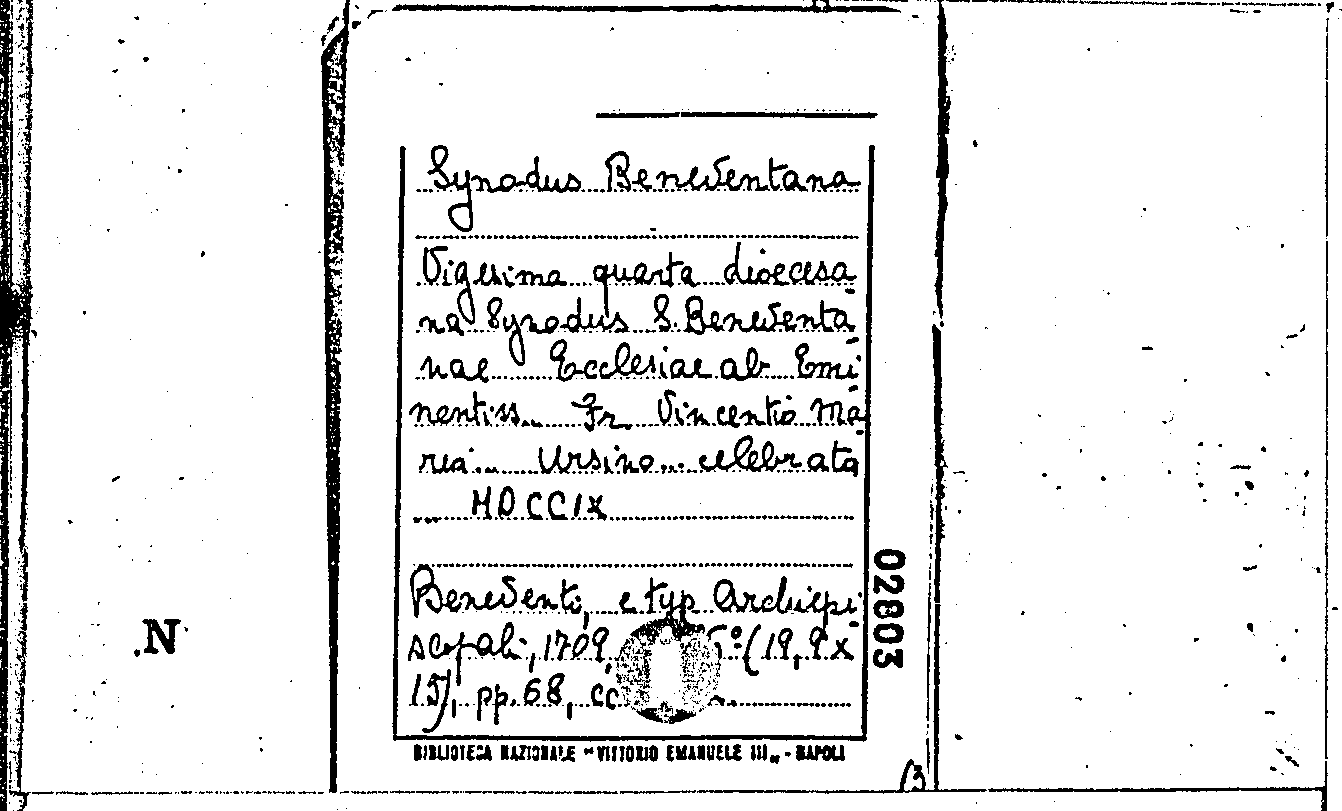 Synodus Beneventana
Vigesima quarta dioecesa-
na Synodus S. Beneventa-
nae Ecclesiae ab Emi-
nentiss... Fr. Vincentio Ma-
ria... Ursino... celebrata
... MDCCIX
Beneventi, e typ Archiepi-
scopali, 1709, 5º (19,9x
15), pp. 68, cc
BIBLIOTECA NAZIONALE "VITTORIO EMANUELE III„ - NAPOLI
02803
.N